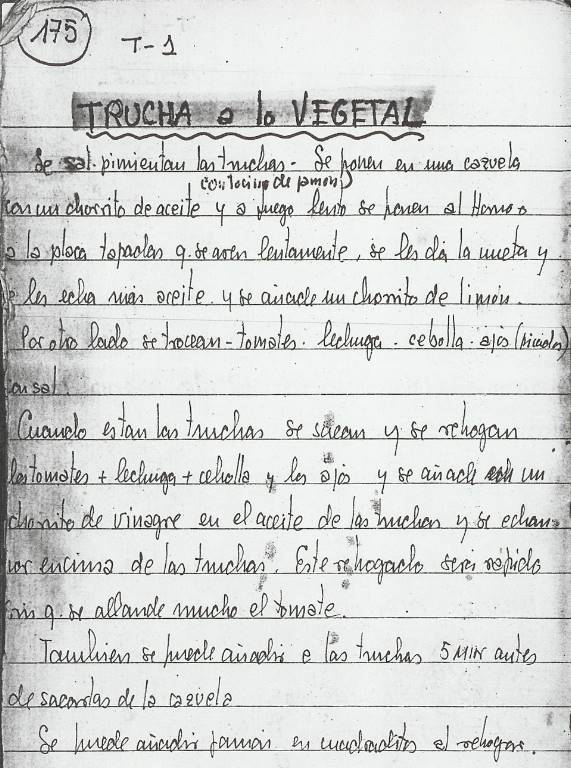 175
T-1
TRUCHA a la VEGETAL
Se sal-pimientan las truchas - Se ponen en una cazuela
con tocino de jamon)
con un chorrito de aceite y a fuego lento se ponen al Horno o
a la placa tapadas q. se asen lentamente, se les da la vuelta y
se les echa más aceite y se añade un chorrito de limón.
Por otro lado se trocean - tomates - lechuga - cebolla - ajos (picados)
con sal.
Cuando estan las truchas se sacan y se rehogan
los tomates + lechuga + cebolla y los ajos y se añade un
chorrito de vinagre en el aceite de las truchas y se echan
por encima de las truchas. Este rehogado será rápido
sin q. se ablande mucho el tomate.
Tambien se puede añadir a las truchas 5 MIN antes
de sacarlas de la cazuela
Se puede añadir jamón en cuadraditos al rehogar.